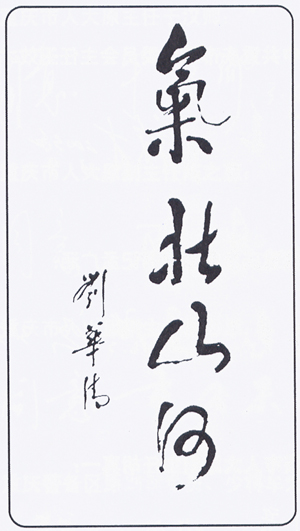 氣壯山河
劉華清